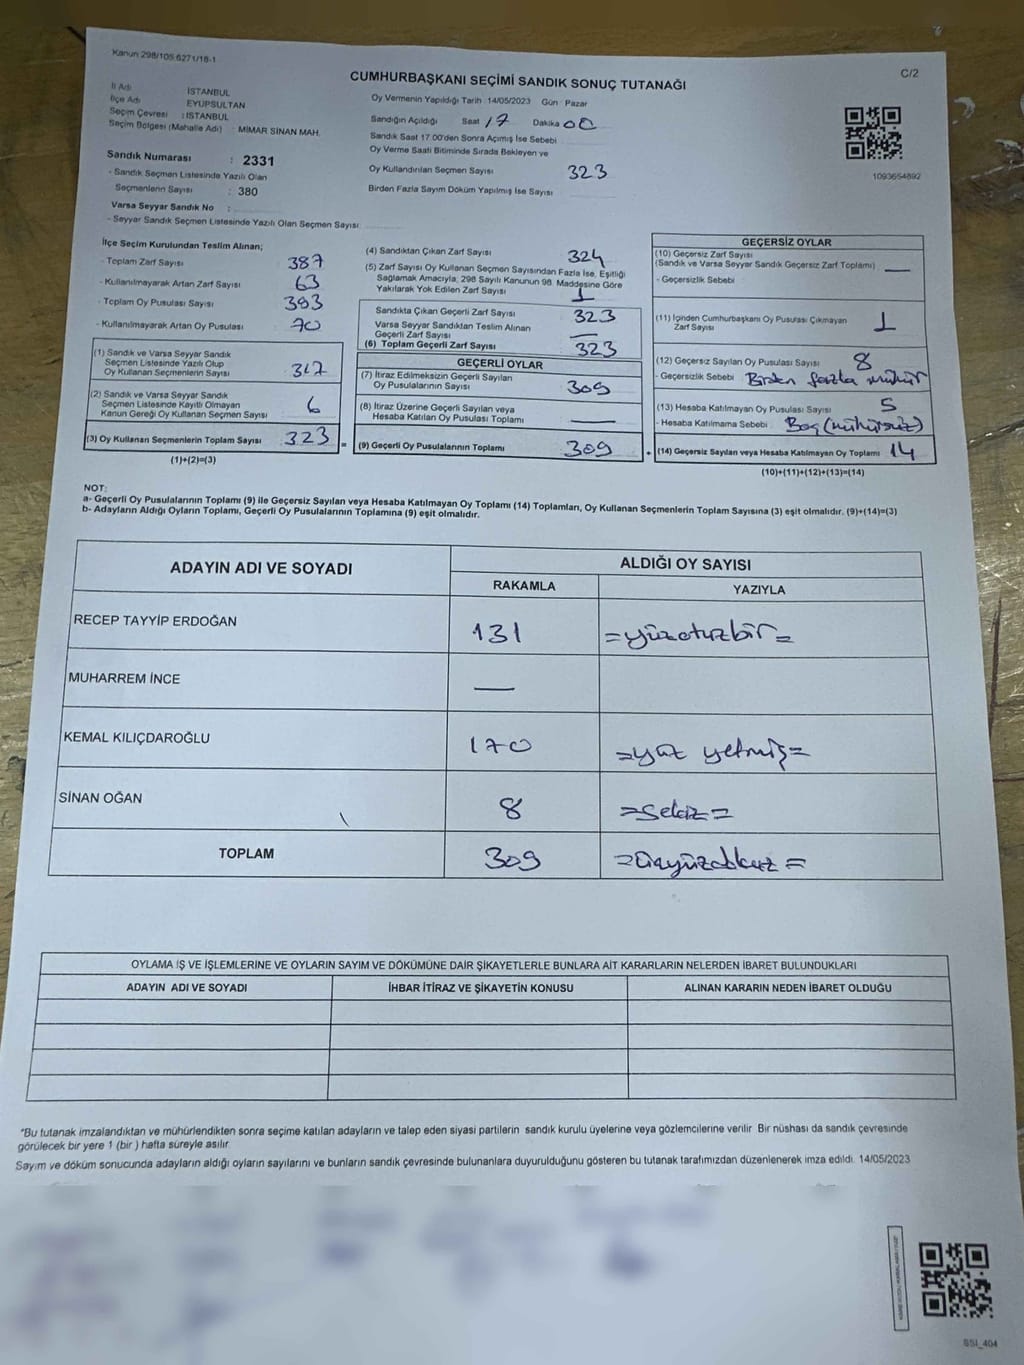 Kanun 298/105 6271/18-1
C/2
CUMHURBAŞKANI SEÇİMİ SANDIK SONUÇ TUTANAĞI
İl Adı İSTANBUL
İlçe Adı EYÜPSULTAN
Seçim Çevresi : İSTANBUL
Seçim Bölgesi (Mahalle Adı) : MİMAR SİNAN MAH.
Sandık Numarası : 2331
- Sandık Seçmen Listesinde Yazılı Olan
Seçmenlerin Sayısı : 380
Varsa Seyyar Sandık No :
- Seyyar Sandık Seçmen Listesinde Yazılı Olan Seçmen Sayısı:
Oy Vermenin Yapıldığı Tarih 14/05/2023 Gün Pazar
Sandığın Açıldığı Saat 17 Dakika 00
Sandık Saat 17.00'den Sonra Açılmış İse Sebebi
Oy Verme Saati Bitiminde Sırada Bekleyen ve
Oy Kullandırılan Seçmen Sayısı 323
Birden Fazla Sayım Döküm Yapılmış İse Sayısı
1093654892
İlçe Seçim Kurulundan Teslim Alınan;
- Toplam Zarf Sayısı 387
- Kullanılmayarak Artan Zarf Sayısı 63
- Toplam Oy Pusulası Sayısı 393
- Kullanılmayarak Artan Oy Pusulası 70
(1) Sandık ve Varsa Seyyar Sandık
Seçmen Listesinde Yazılı Olup
Oy Kullanan Seçmenlerin Sayısı 317
(2) Sandık ve Varsa Seyyar Sandık
Seçmen Listesinde Kayıtlı Olmayan
Kanun Gereği Oy Kullanan Seçmen Sayısı 6
(3) Oy Kullanan Seçmenlerin Toplam Sayısı 323 =
(1)+(2)=(3)
(4) Sandıktan Çıkan Zarf Sayısı 324
(5) Zarf Sayısı Oy Kullanan Seçmen Sayısından Fazla İse, Eşitliği
Sağlamak Amacıyla; 298 Sayılı Kanunun 98. Maddesine Göre
Yakılarak Yok Edilen Zarf Sayısı 1
Sandıkta Çıkan Geçerli Zarf Sayısı 323
Varsa Seyyar Sandıktan Teslim Alınan
Geçerli Zarf Sayısı —
(6) Toplam Geçerli Zarf Sayısı 323
GEÇERLİ OYLAR
(7) İtiraz Edilmeksizin Geçerli Sayılan
Oy Pusulalarının Sayısı 309
(8) İtiraz Üzerine Geçerli Sayılan veya
Hesaba Katılan Oy Pusulaları Toplamı —
(9) Geçerli Oy Pusulalarının Toplamı 309 +
GEÇERSİZ OYLAR
(10) Geçersiz Zarf Sayısı
(Sandık ve Varsa Seyyar Sandık Geçersiz Zarf Toplamı) —
- Geçersizlik Sebebi
(11) İçinden Cumhurbaşkanı Oy Pusulası Çıkmayan
Zarf Sayısı 1
(12) Geçersiz Sayılan Oy Pusulası Sayısı 8
- Geçersizlik Sebebi Birden fazla mühür
(13) Hesaba Katılmayan Oy Pusulası Sayısı 5
- Hesaba Katılmama Sebebi Boş (mühürsüz)
(14) Geçersiz Sayılan veya Hesaba Katılmayan Oy Toplamı 14
(10)+(11)+(12)+(13)=(14)
NOT:
a- Geçerli Oy Pusulalarının Toplamı (9) ile Geçersiz Sayılan veya Hesaba Katılmayan Oy Toplamı (14) Toplamları, Oy Kullanan Seçmenlerin Toplam Sayısına (3) eşit olmalıdır. (9)+(14)=(3)
b- Adayların Aldığı Oyların Toplamı, Geçerli Oy Pusulalarının Toplamına (9) eşit olmalıdır.
ADAYIN ADI VE SOYADI ALDIĞI OY SAYISI
RAKAMLA YAZIYLA
RECEP TAYYİP ERDOĞAN 131 =yüzotuzbir=
MUHARREM İNCE —
KEMAL KILIÇDAROĞLU 170 =yüz yetmiş=
SİNAN OĞAN 8 =Sekiz=
TOPLAM 309 =Üçyüzdokuz=
OYLAMA İŞ VE İŞLEMLERİNE VE OYLARIN SAYIM VE DÖKÜMÜNE DAİR ŞİKAYETLERLE BUNLARA AİT KARARLARIN NELERDEN İBARET BULUNDUKLARI
ADAYIN ADI VE SOYADI İHBAR İTİRAZ VE ŞİKAYETİN KONUSU ALINAN KARARIN NEDEN İBARET OLDUĞU
"Bu tutanak imzalandıktan ve mühürlendikten sonra seçime katılan adayların ve talep eden siyasi partilerin sandık kurulu üyelerine veya gözlemcilerine verilir Bir nüshası da sandık çevresinde
görülecek bir yere 1 (bir ) hafta süreyle asılır.
Sayım ve döküm sonucunda adayların aldığı oyların sayılarını ve bunların sandık çevresinde bulunanlara duyurulduğunu gösteren bu tutanak tarafımızdan düzenlenerek imza edildi. 14/05/2023
SSI_404